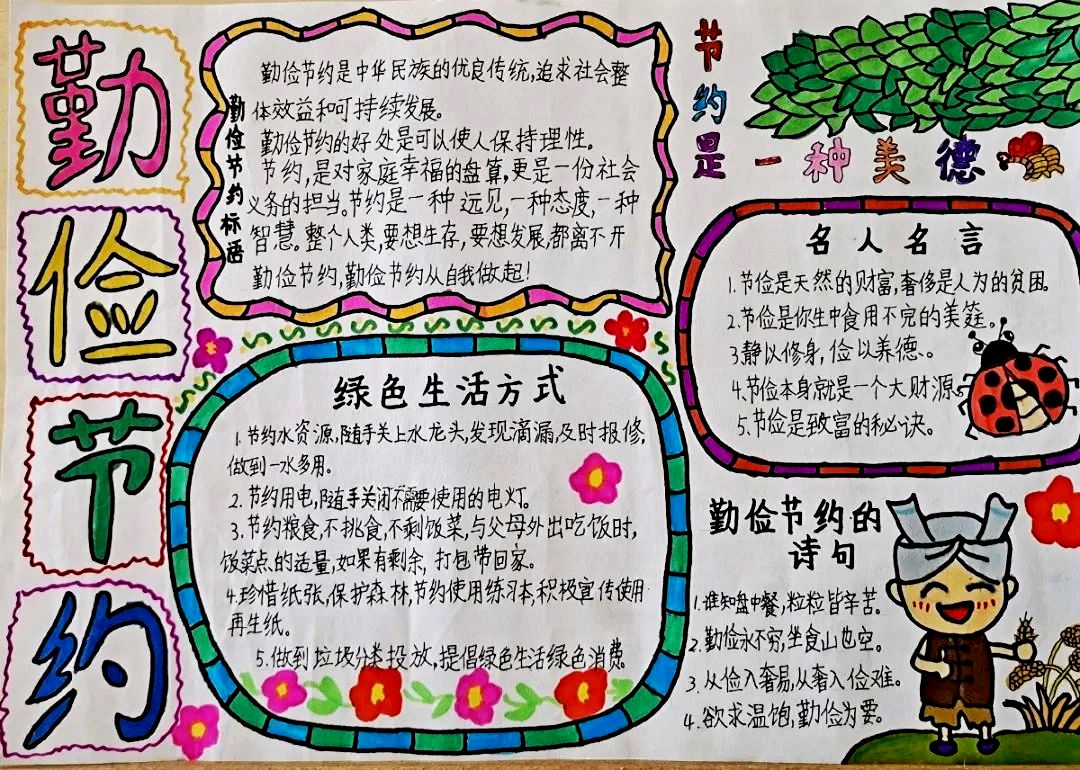 勤俭节约
勤俭节约标语
勤俭节约是中华民族的优良传统,追求社会整
体效益和可持续发展。
勤俭节约的好处是可以使人保持理性。
节约,是对家庭幸福的盘算,更是一份社会
义务的担当。节约是一种远见,一种态度,一种
智慧。整个人类,要想生存,要想发展,都离不开
勤俭节约,勤俭节约从自我做起!
节约是一种美德
名人名言
1.节俭是天然的财富,奢侈是人为的贫困。
2.节俭是你生中食用不完的美筵。
3静以修身,俭以养德。
4.节俭本身就是一个大财源。
5.节俭是致富的秘诀。
绿色生活方式
1.节约水资源,随手关上水龙头,发现滴漏,及时报修,
做到一水多用。
2.节约用电,随手关闭不需要使用的电灯。
3.节约粮食,不挑食,不剩饭菜,与父母外出吃饭时,
饭菜点的适量,如果有剩余,打包带回家。
4.珍惜纸张,保护森林,节约使用练习本,积极宣传使用
再生纸。
5.做到垃圾分类投放,提倡绿色生活绿色消费。
勤俭节约的
诗句
1.谁知盘中餐,粒粒皆辛苦。
2.勤俭永不穷,坐食山也空。
3.从俭入奢易,从奢入俭难。
4.欲求温饱,勤俭为要。